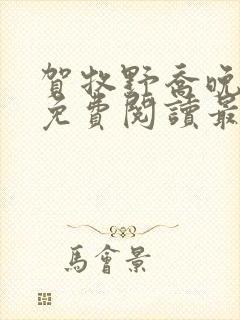 賀牧野喬晚
免費閱讀最
馬會景